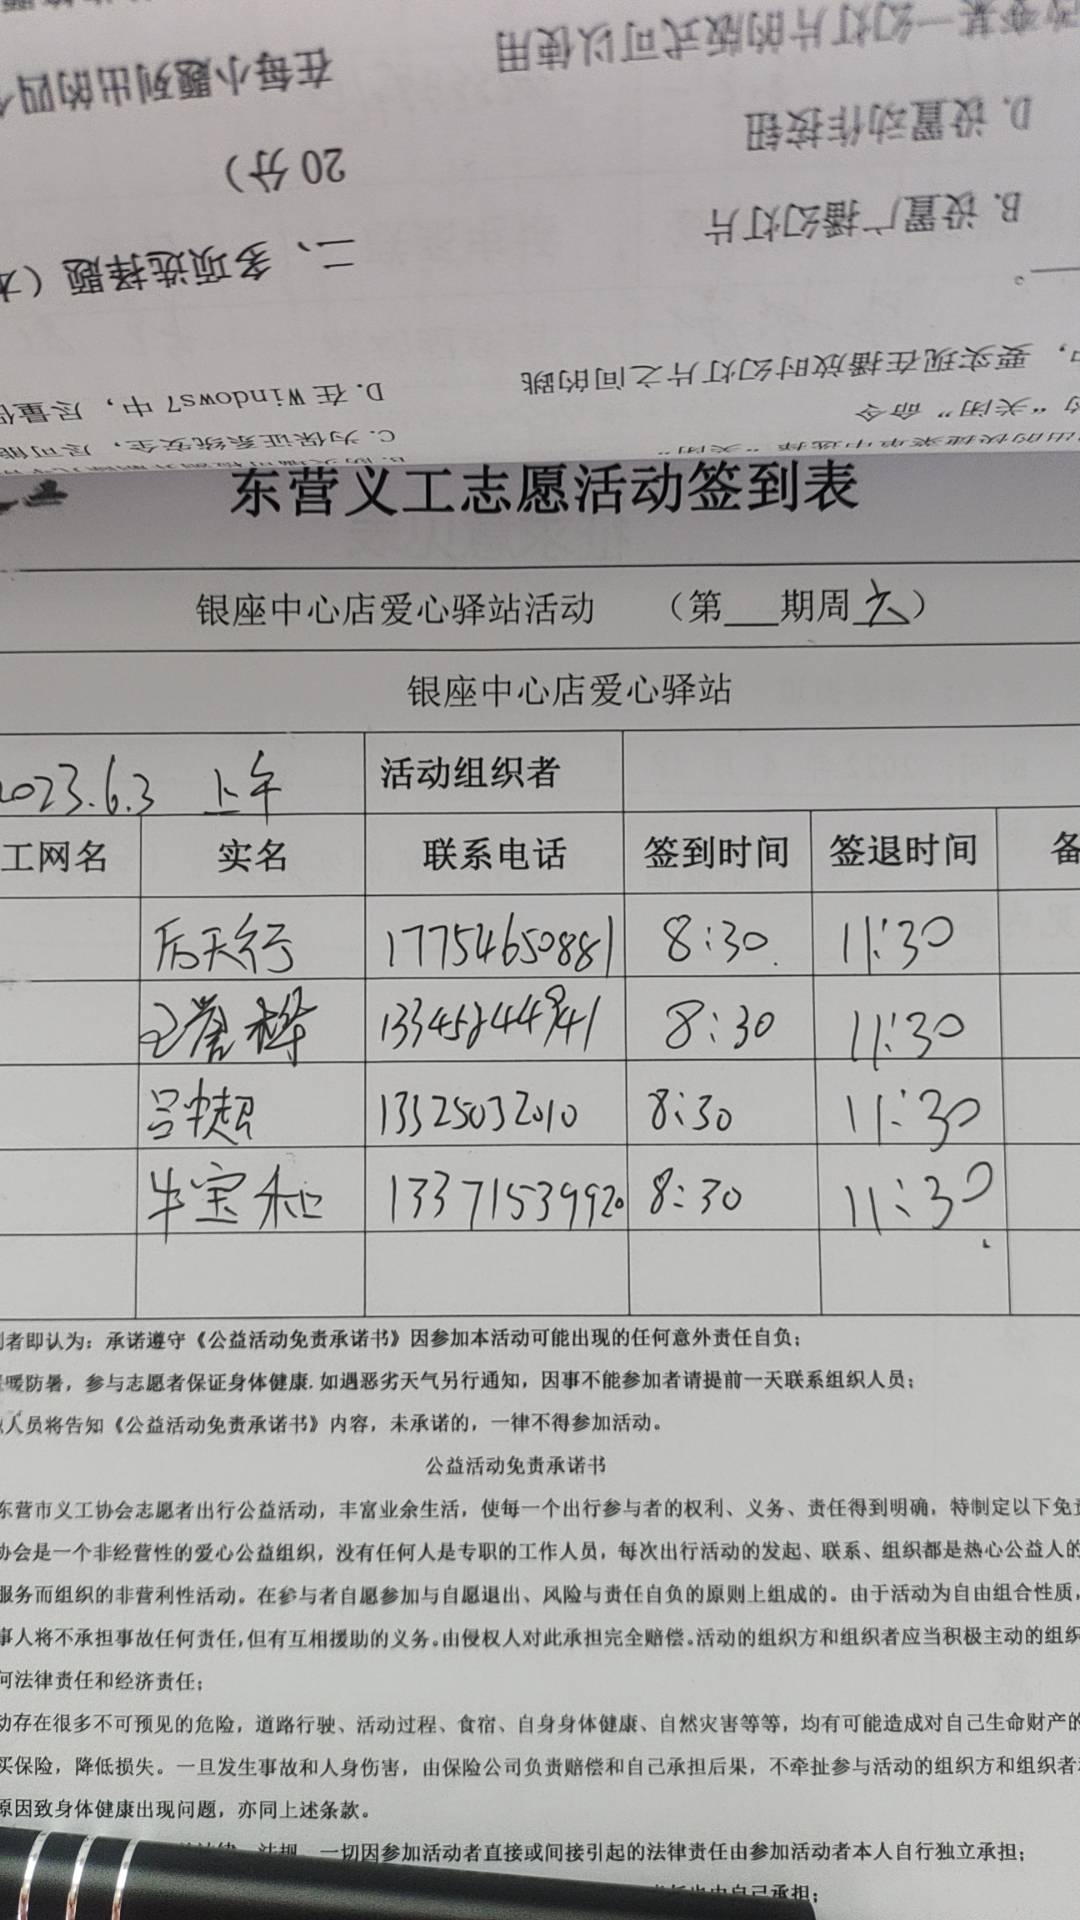 改变某一幻灯片的版式可以使用
在每小题列出的四
D. 设置动作按钮
20 分）
B. 设置广播幻灯片
二、多项选择题（本
要实现在播放时幻灯片之间的跳
D. 在 Windows7 中，尽量
的“关闭”命令
C. 为保证系统安全，尽可能
出的快捷菜单中选择“关闭”
东营义工志愿活动签到表
银座中心店爱心驿站活动 （第___期周六）
银座中心店爱心驿站
2023.6.3 上午 活动组织者
工网名 实名 联系电话 签到时间 签退时间 备
后天行 17754650881 8:30 11:30
王誉桦 8:30 11:30
吕中超 13325032010 8:30 11:30
牛宝和 13371539920 8:30 11:30
到者即认为：承诺遵守《公益活动免责承诺书》因参加本活动可能出现的任何意外责任自负；
暖防暑，参与志愿者保证身体健康.如遇恶劣天气另行通知，因事不能参加者请提前一天联系组织人员；
人员将告知《公益活动免责承诺书》内容，未承诺的，一律不得参加活动。
公益活动免责承诺书
东营市义工协会志愿者出行公益活动，丰富业余生活，使每一个出行参与者的权利、义务、责任得到明确，特制定以下免责
协会是一个非经营性的爱心公益组织，没有任何人是专职的工作人员，每次出行活动的发起、联系、组织都是热心公益人的
服务而组织的非营利性活动。在参与者自愿参加与自愿退出、风险与责任自负的原则上组成的。由于活动为自由组合性质，
事人将不承担事故任何责任，但有互相援助的义务。由侵权人对此承担完全赔偿。活动的组织方和组织者应当积极主动的组织
何法律责任和经济责任；
动存在很多不可预见的危险，道路行驶、活动过程、食宿、自身身体健康、自然灾害等等，均有可能造成对自己生命财产的
买保险，降低损失。一旦发生事故和人身伤害，由保险公司负责赔偿和自己承担后果，不牵扯参与活动的组织方和组织者
原因致身体健康出现问题，亦同上述条款。
法规，一切因参加活动者直接或间接引起的法律责任由参加活动者本人自行独立承担；
由自己承担；